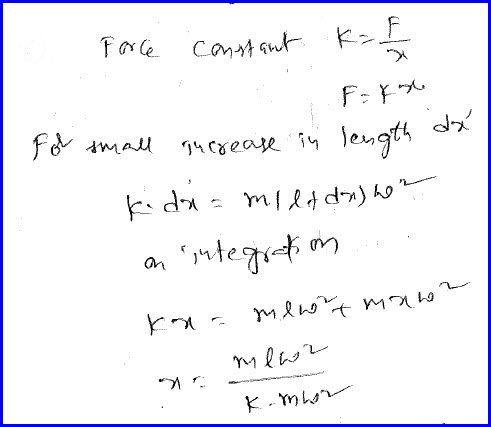 Force constant K = F/x
F = Kx
For small increase in length dx'
K. dx = m(l+dx)ω²
on integration
Kx = mlω² + mxω²
x = mlω² / K - mω²